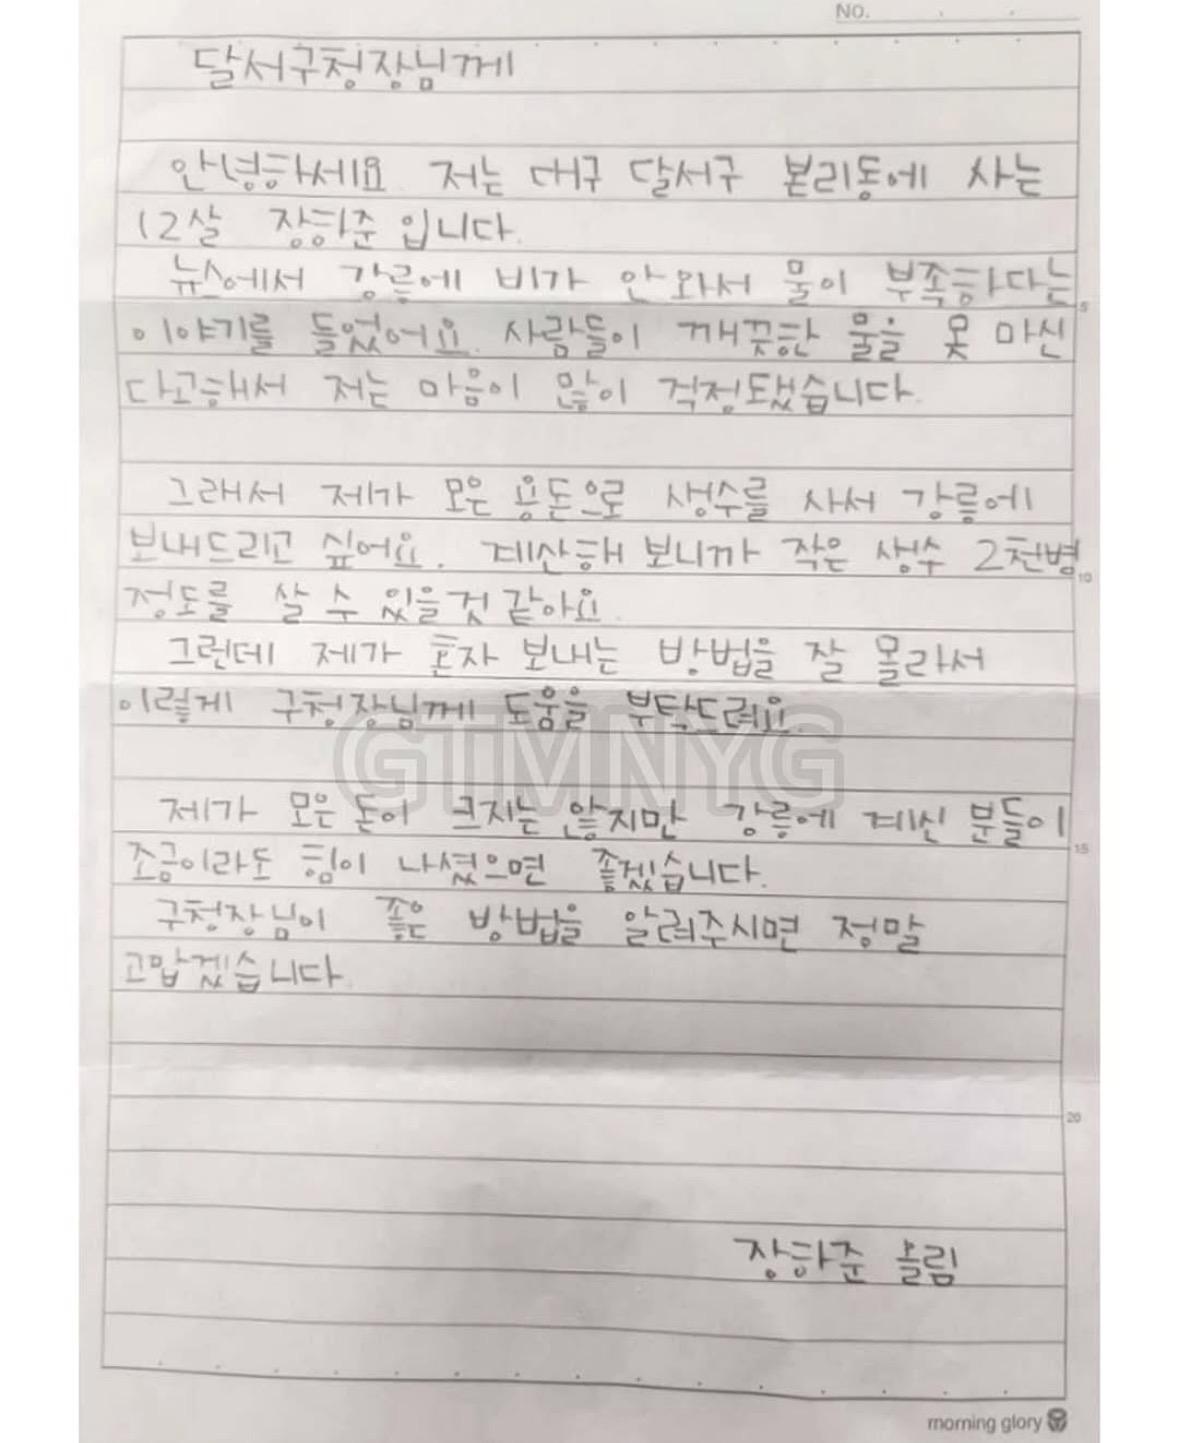 No.
달서구청장님께
안녕하세요 저는 대구 달서구 본리동에 사는
12살 장하준 입니다.
뉴스에서 강릉에 비가 안 와서 물이 부족하다는
5
이야기를 들었어요. 사람들이 깨끗한 물을 못 마신
다고해서 저는 마음이 많이 걱정됐습니다.
그래서 제가 모은 용돈으로 생수를 사서 강릉에
보내드리고 싶어요. 계산해 보니까 작은 생수 2천병
10
정도를 살 수 있을것 같아요.
그런데 제가 혼자 보내는 방법을 잘 몰라서
이렇게 구청장님께 도움을 부탁드려요.
GTMNYG
제가 모은 돈이 크지는 않지만 강릉에 계신 분들이
15
조금이라도 힘이 나셨으면 좋겠습니다.
구청장님이 좋은 방법을 알려주시면 정말
고맙겠습니다.
20
장하준 올림
morning glory